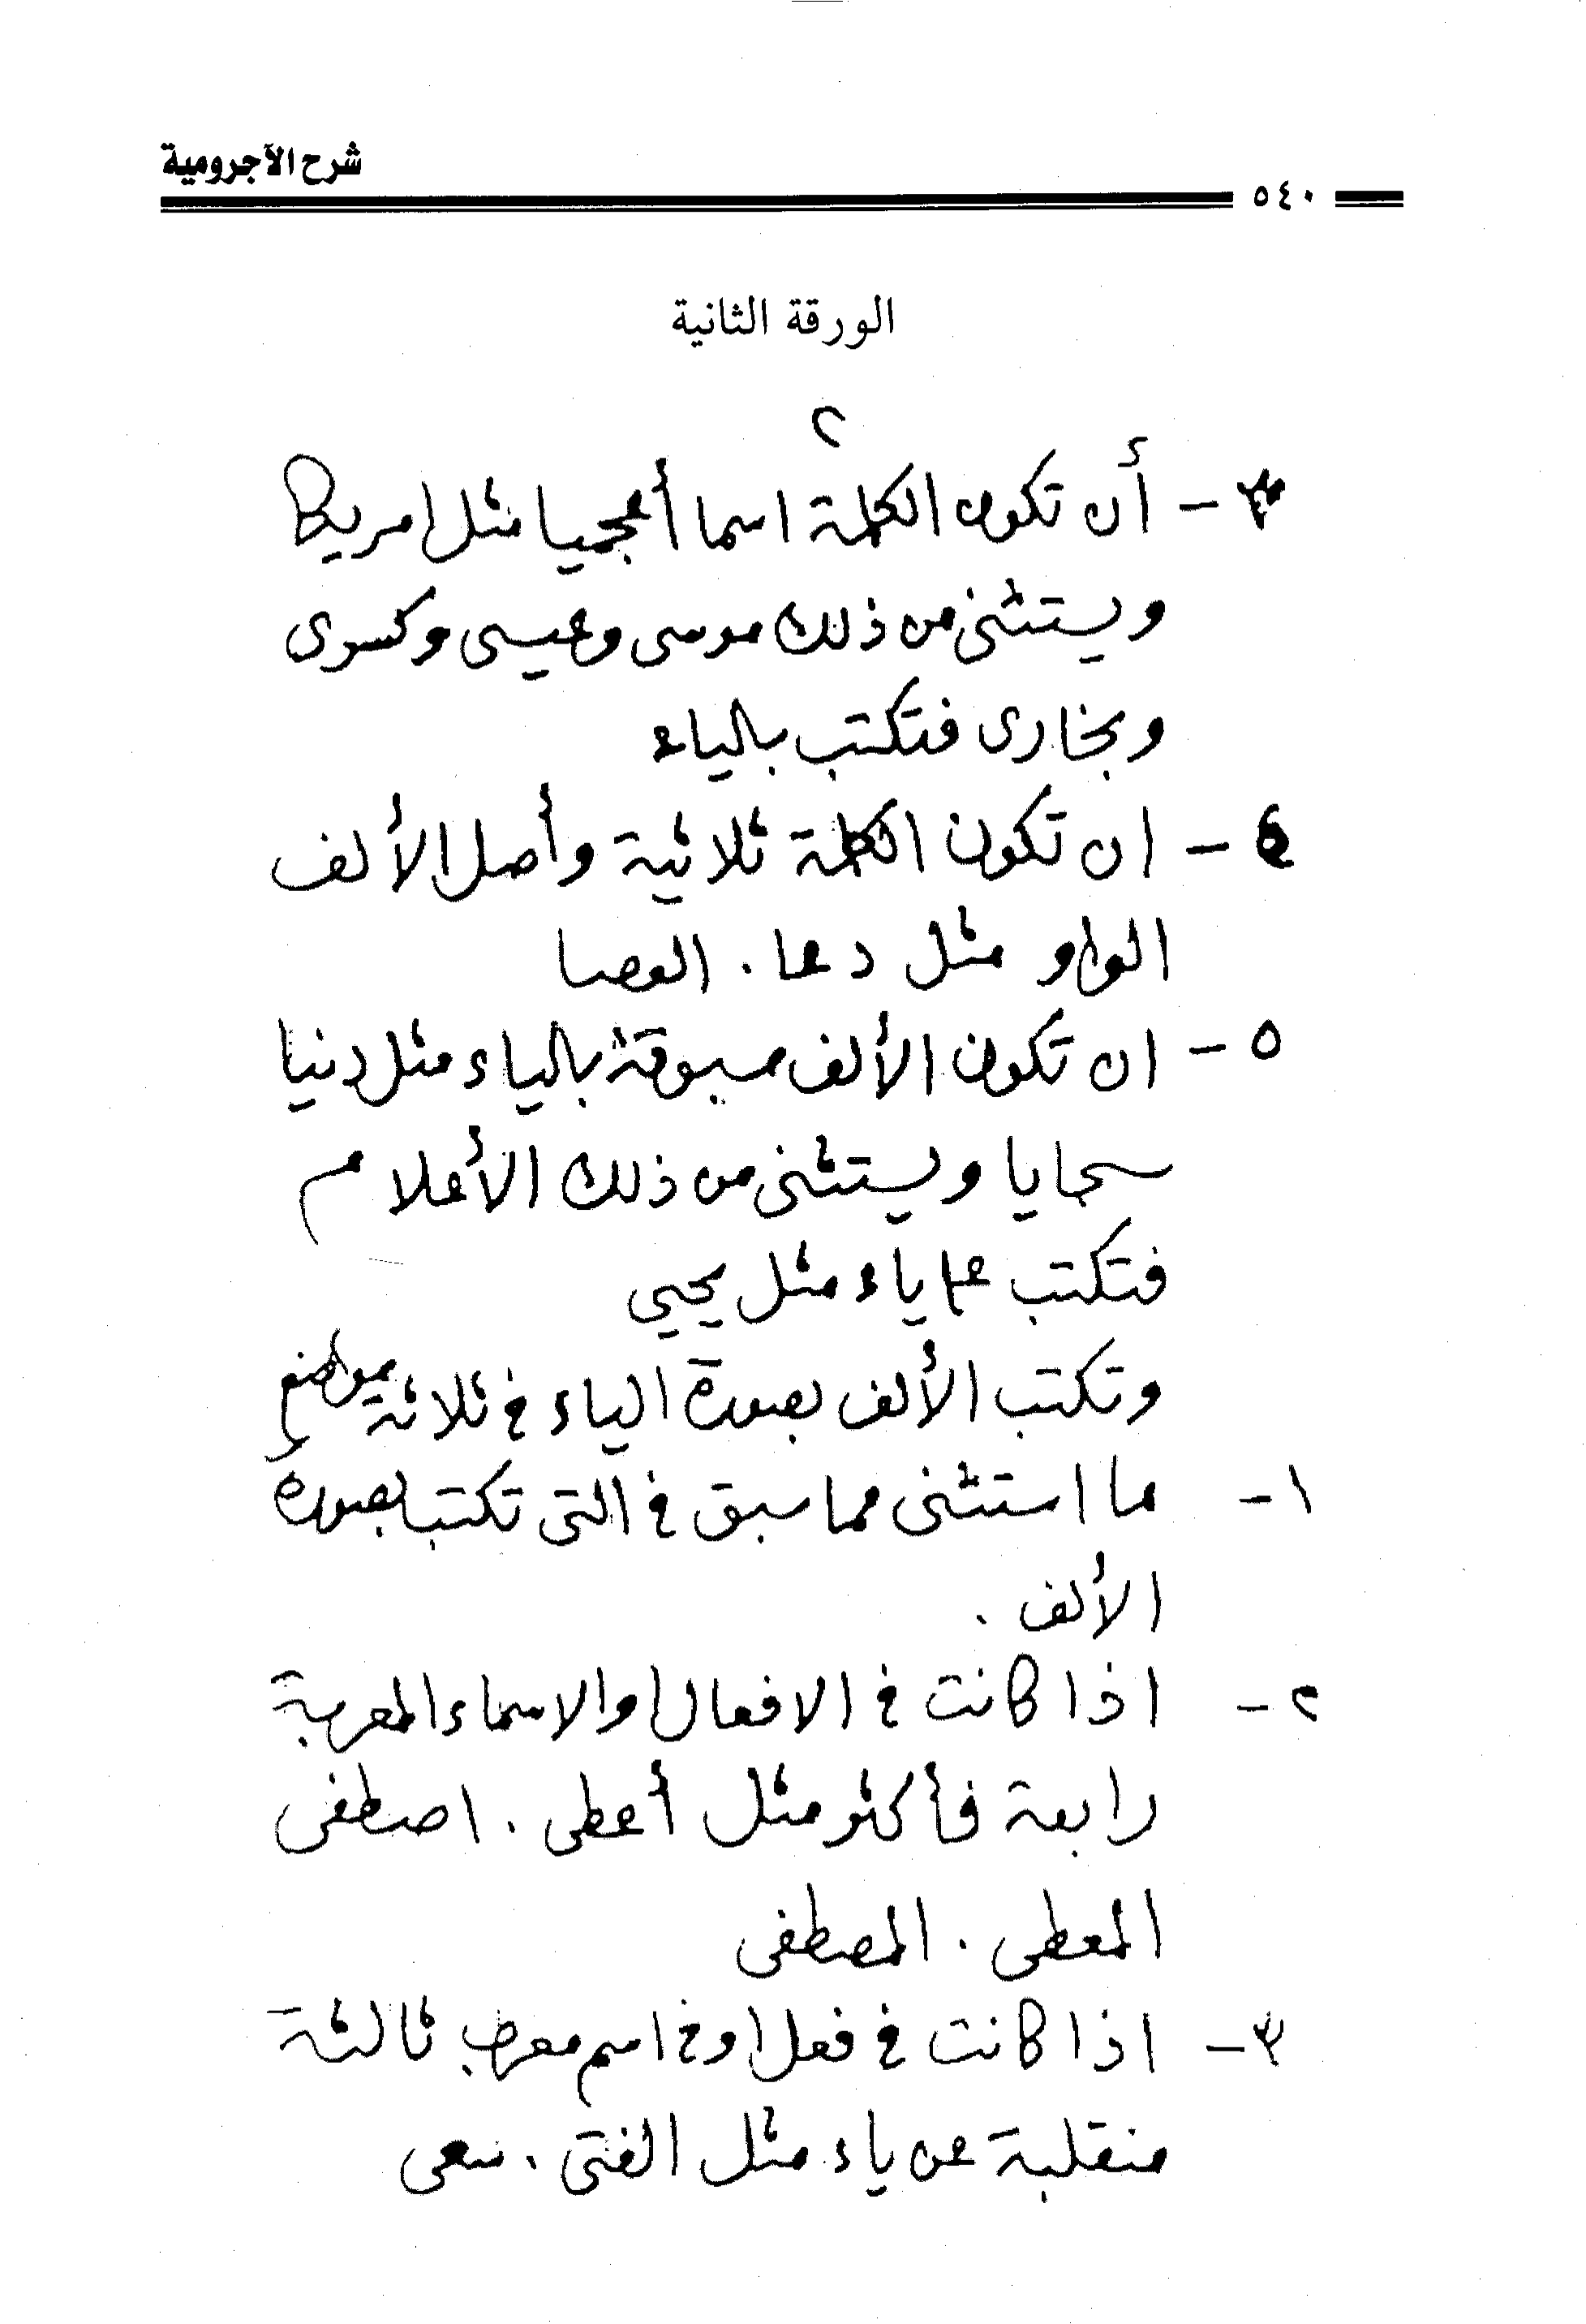 شرح الآجرومية
٥٤٠
الورقة الثانية
٢
٣- أن تكون الكلمة اسما أعجميا مثل امريكا
ويستثنى من ذلك موسى وعيسى وكسرى
وبخارى فتكتب بالياء
٤- ان تكون الكلمة ثلاثية وأصل الألف
الواو مثل دعا . العصا
٥- ان تكون الألف مسبوقة بالياء مثل دنيا
سجايا ويستثنى من ذلك الأعلام
فتكتب ياء مثل يحيي
وتكتب الألف بصورة الياء في ثلاثة مواضع
١- ما استثنى مما سبق في التي تكتب بصورة
الألف .
٢- اذا كانت في الافعال او الاسماء المعربة
رابعة فأكثر مثل أعطى . اصطفى
المعطى . المصطفى
٣- اذا كانت في فعل او في اسم معرب ثالثة
منقلبة عن ياء مثل الفتى . سعى